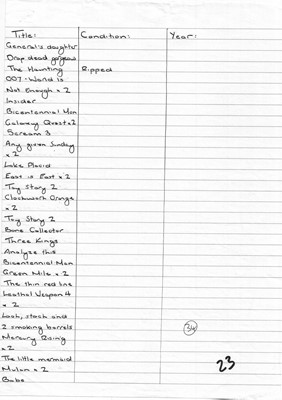 Title: Condition: Year:
General's daughter
Drop dead gorgeous
The Haunting Ripped
007 - World is
Not Enough x 2
Insider
Bicentennial Man
Galaxy Quest x2
Scream 3
Any given Sunday
x 2
Lake Placid
East is East x 2
Toy Story 2
Clockwork Orange
x 2
Toy Story 2
Bone Collector
Three Kings
Analyze this
Bicentennial Man
Green Mile x 2
The thin red line
Leathal Weapon 4
x 2
Lock, stock and
2 smoking barrels
Mercury Rising
x 2
The little mermaid
Mulan x 2
Babe
34
23